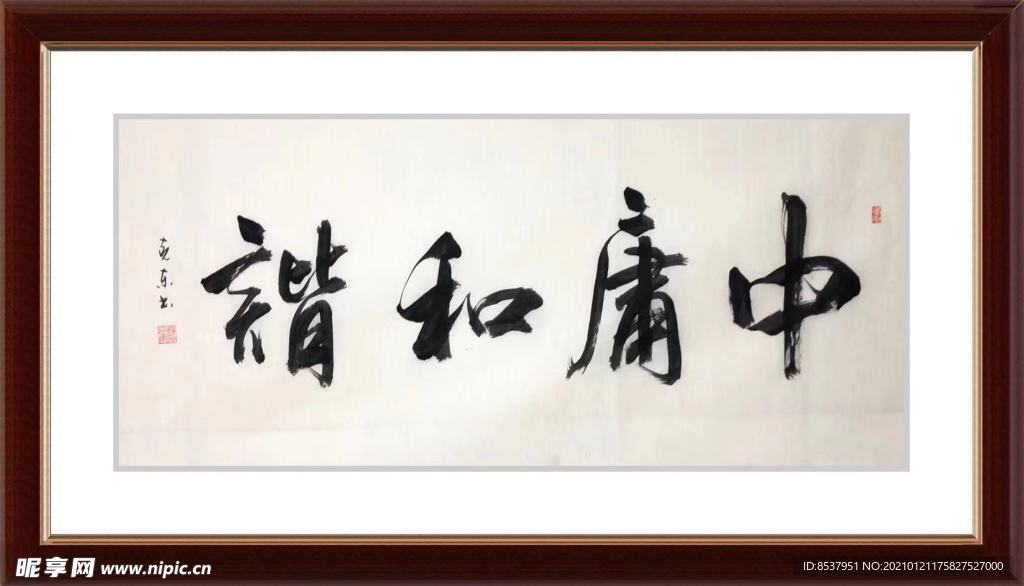 中庸和谐
昵享网 www.nipic.cn
ID:8537951 NO:20210121175827527000